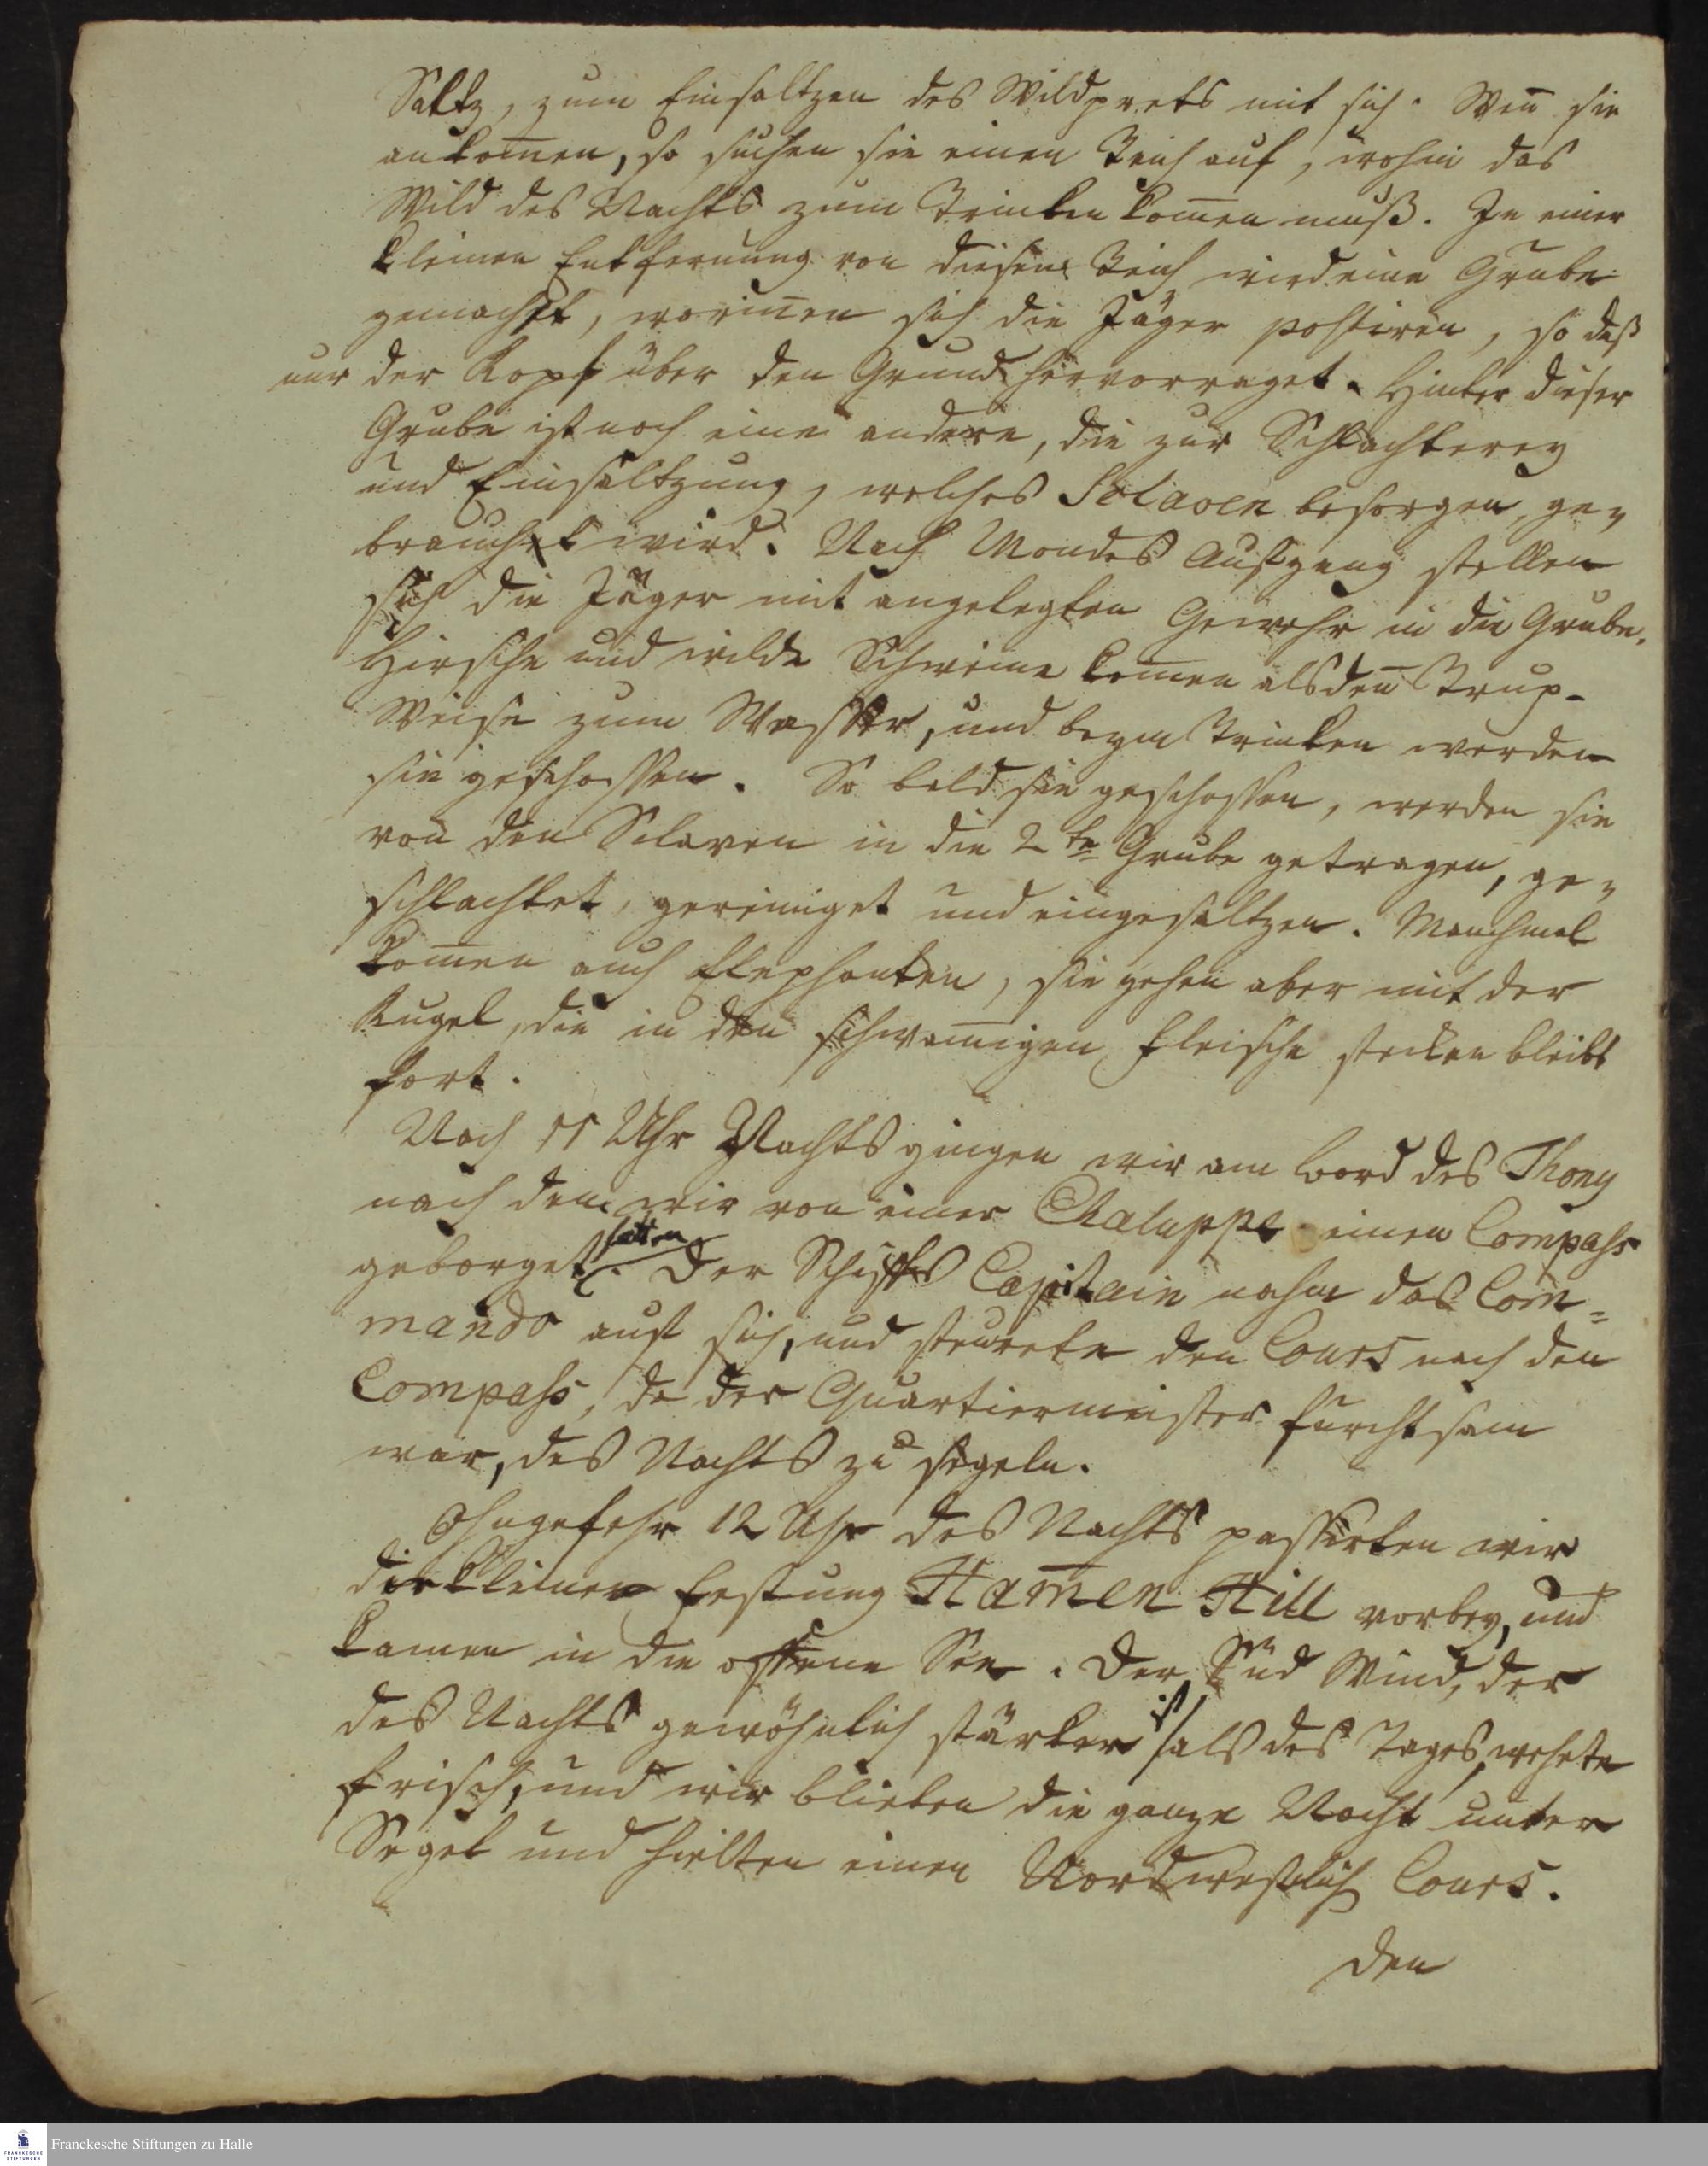 Saltz, zum Einsaltzen des Wildprets mit sich. Wen̄ sie
ankom̄en, so suchen sie einen Teich auf, wohin das
Wild des Nachts zum Trinken kom̄en muß. In einer
kleinen Entfernung von diesem Teich wird eine Grube
gemacht, worin̄en sich die Jäger postiren, so daß
nur der Kopf über den Grund hervorraget. Hinter dieser
Grube ist noch eine andere, die zur Schlachterey
und Einsaltzung, welches Sclaven besorgen, ge-
braucht wird. Nach Mondes Aufgang stellen
sich die Jäger mit angelegten Gewehr in die Grube.
Hirsche und wilde Schweine kom̄en alsden̄ Trup-
Weise zum Wasser, und beym Trinken werden
sie geschossen. So bald sie geschossen, werden sie
von den Sclaven in die 2te Grube getragen, ge-
schlachtet, gereiniget und eingesaltzen. Manchmal
kom̄en auch Elephanten, sie gehen aber mit der
Kugel, die in den schwam̄igen Fleische stecken bleibt
fort.
Nach 11 Uhr Nachts gingen wir am Bord des Thony
nach dem wir von einer Chaluppe einen Compass
geborget hatten. Der Schiffs Capitain nahm das Com̄=
mando auf sich, und steurete den Cours nach den
Compass, da der Quartiermeister furchtsam
war, des Nachts zu segeln.
Ohngefehr 12 Uhr des Nachts passirten wir
die kleine Festung Ham̄en Hill vorbey, und
kamen in die offene See. Der Süd Wind, der
des Nachts gewöhnlich stärker ist als des Tages, wehete
frisch, und wir blieben die ganze Nacht unter
Segel und hielten einen Nordwestlich Cours.
Den
Franckesche Stiftungen zu Halle
FRANCKESCHE
STIFTUNGEN